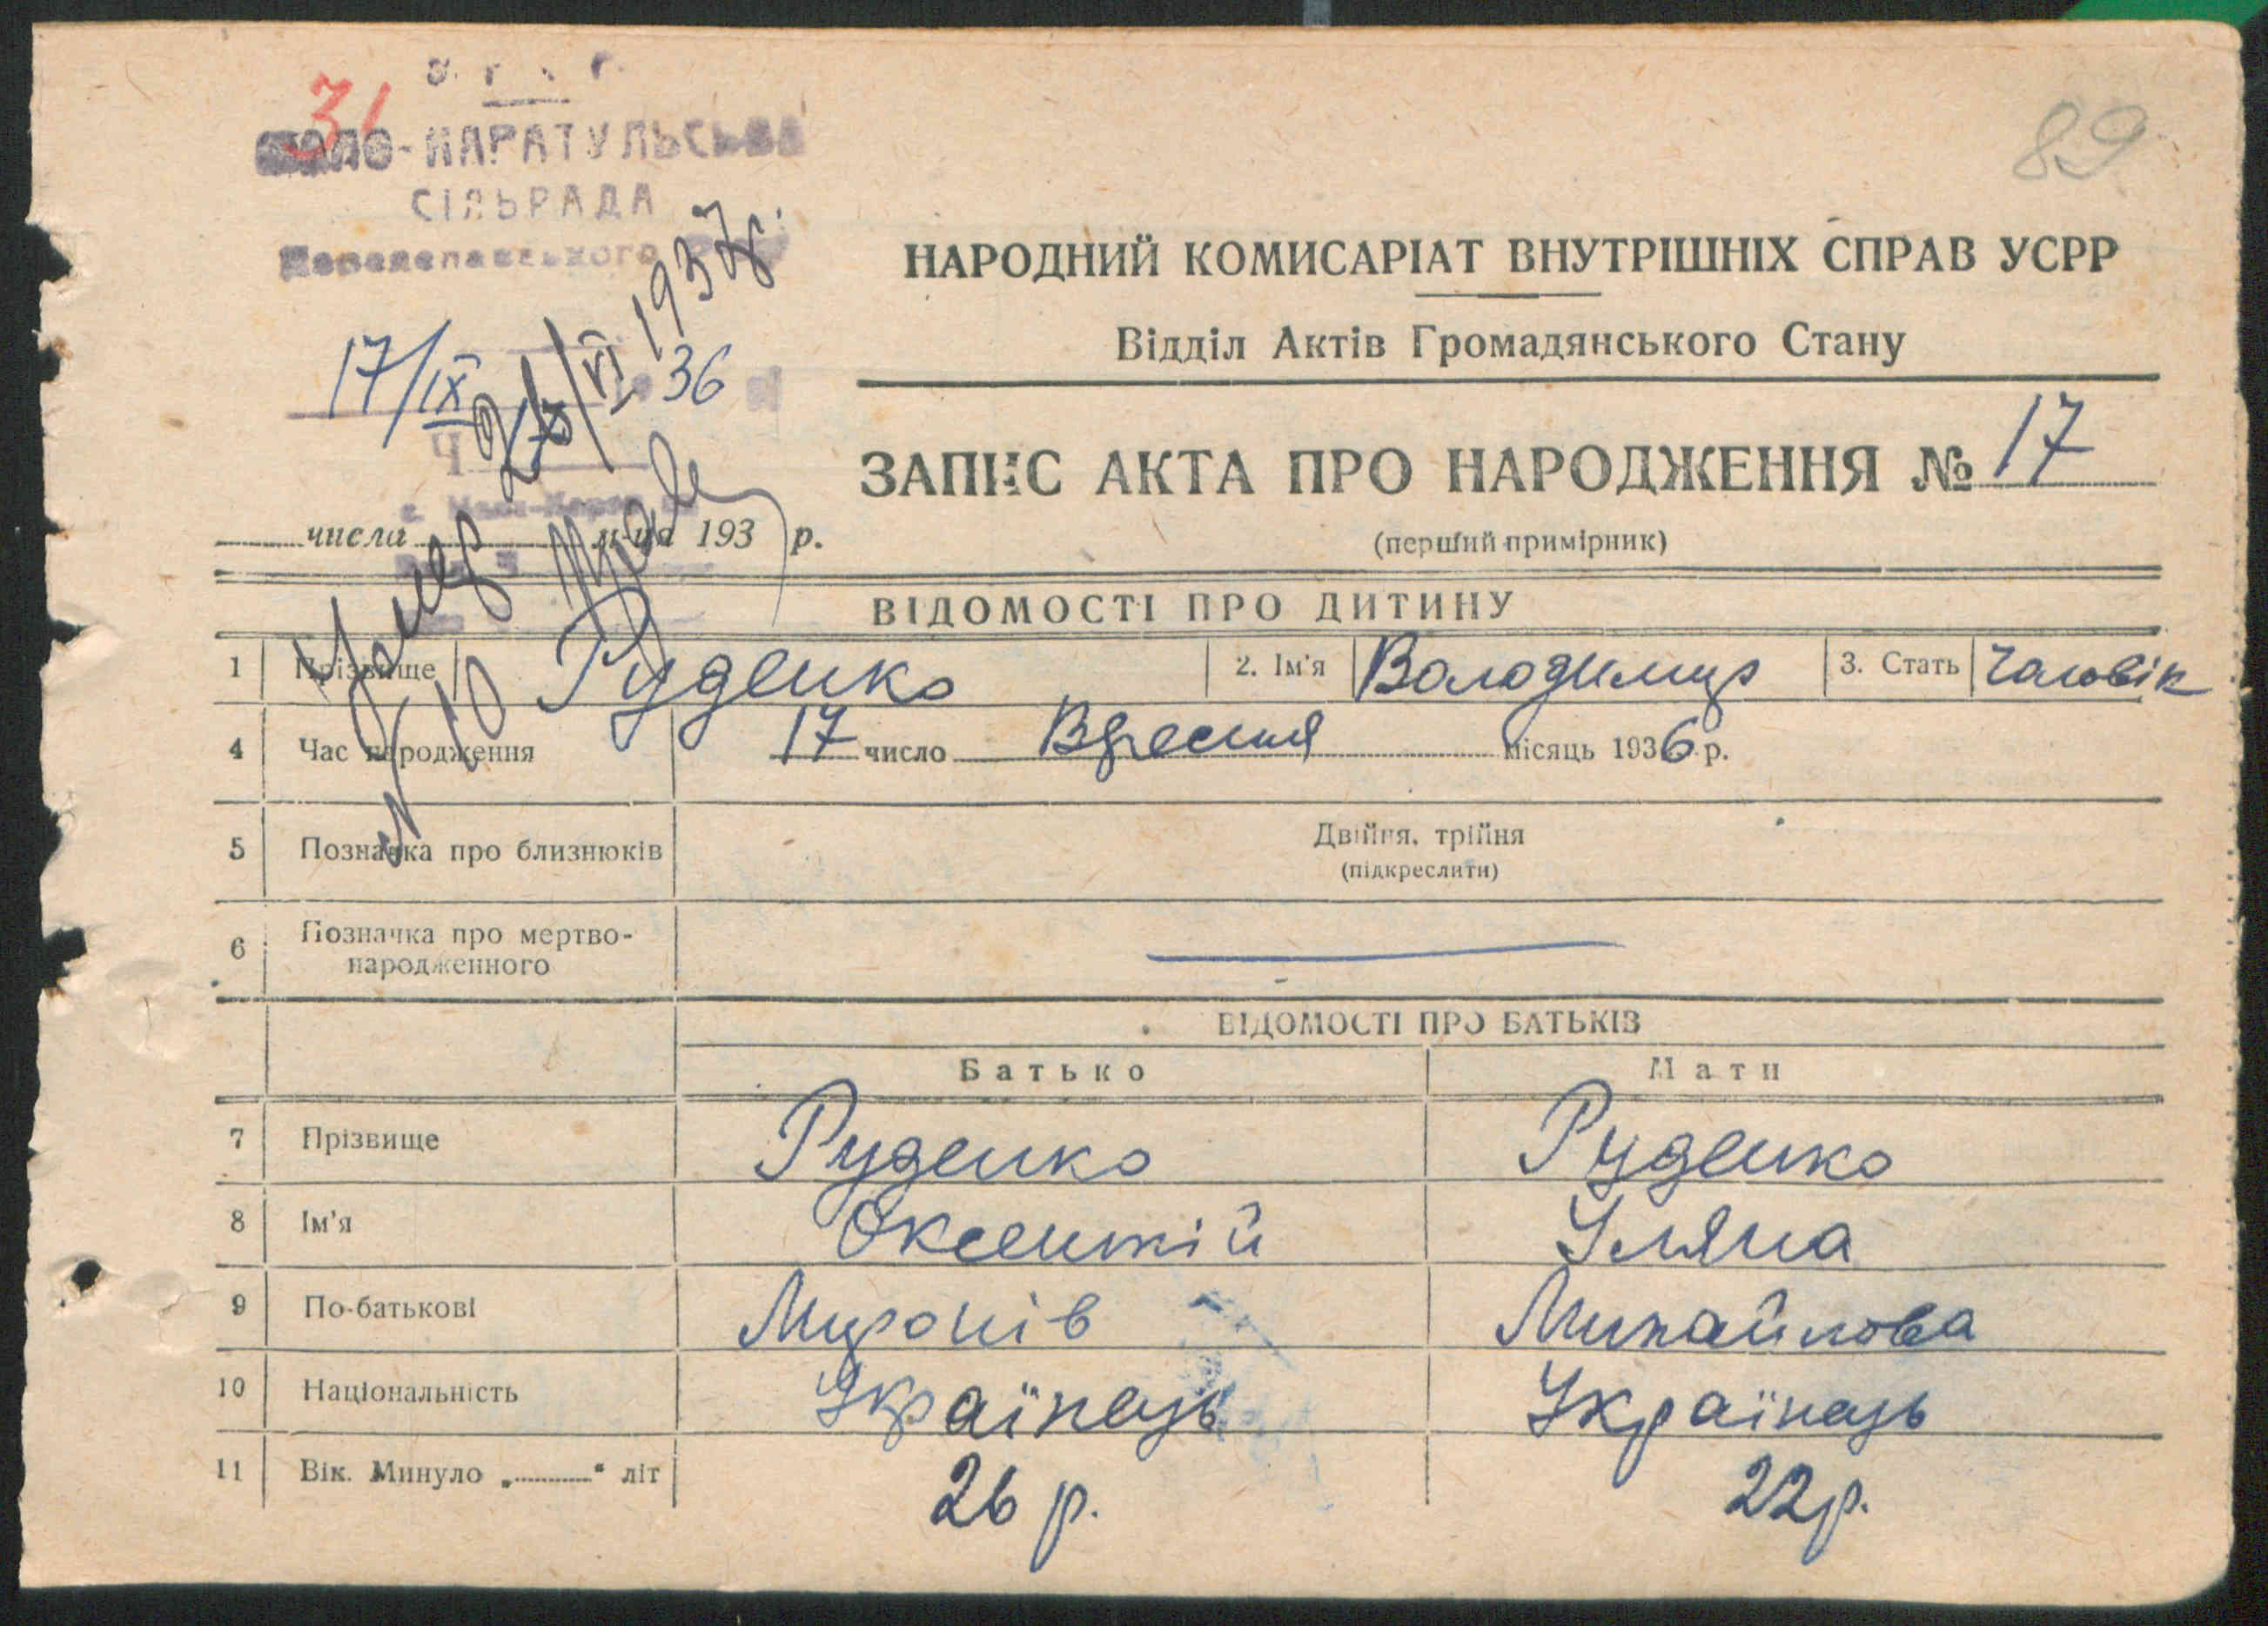 31
89
МАЛО-КАРАТУЛЬСЬКА
СІЛЬРАДА
Переяславського
НАРОДНИЙ КОМИСАРІАТ ВНУТРІШНІХ СПРАВ УСРР
Відділ Актів Громадянського Стану
17/IX 36
Ч 17
ЗАПИС АКТА ПРО НАРОДЖЕННЯ № 17
(перший примірник)
числа м-ця 193 р.
Помер
21/VI 1937р.
№ 10
ВІДОМОСТІ ПРО ДИТИНУ
1 Прізвище Руденко 2. Ім'я Володимир 3. Стать Чаловік
4 Час народження 17 число Вресня місяць 1936 р.
5 Позначка про близнюків Двійня, трійня
(підкреслити)
6 Позначка про мертво-
народженного
ВІДОМОСТІ ПРО БАТЬКІВ
Батько Мати
7 Прізвище Руденко Руденко
8 Ім'я Оксентій Уляна
9 По-батькові Миронів Михайлова
10 Національність Українець Українець
11 Вік. Минуло „ “ літ 26 р. 22р.